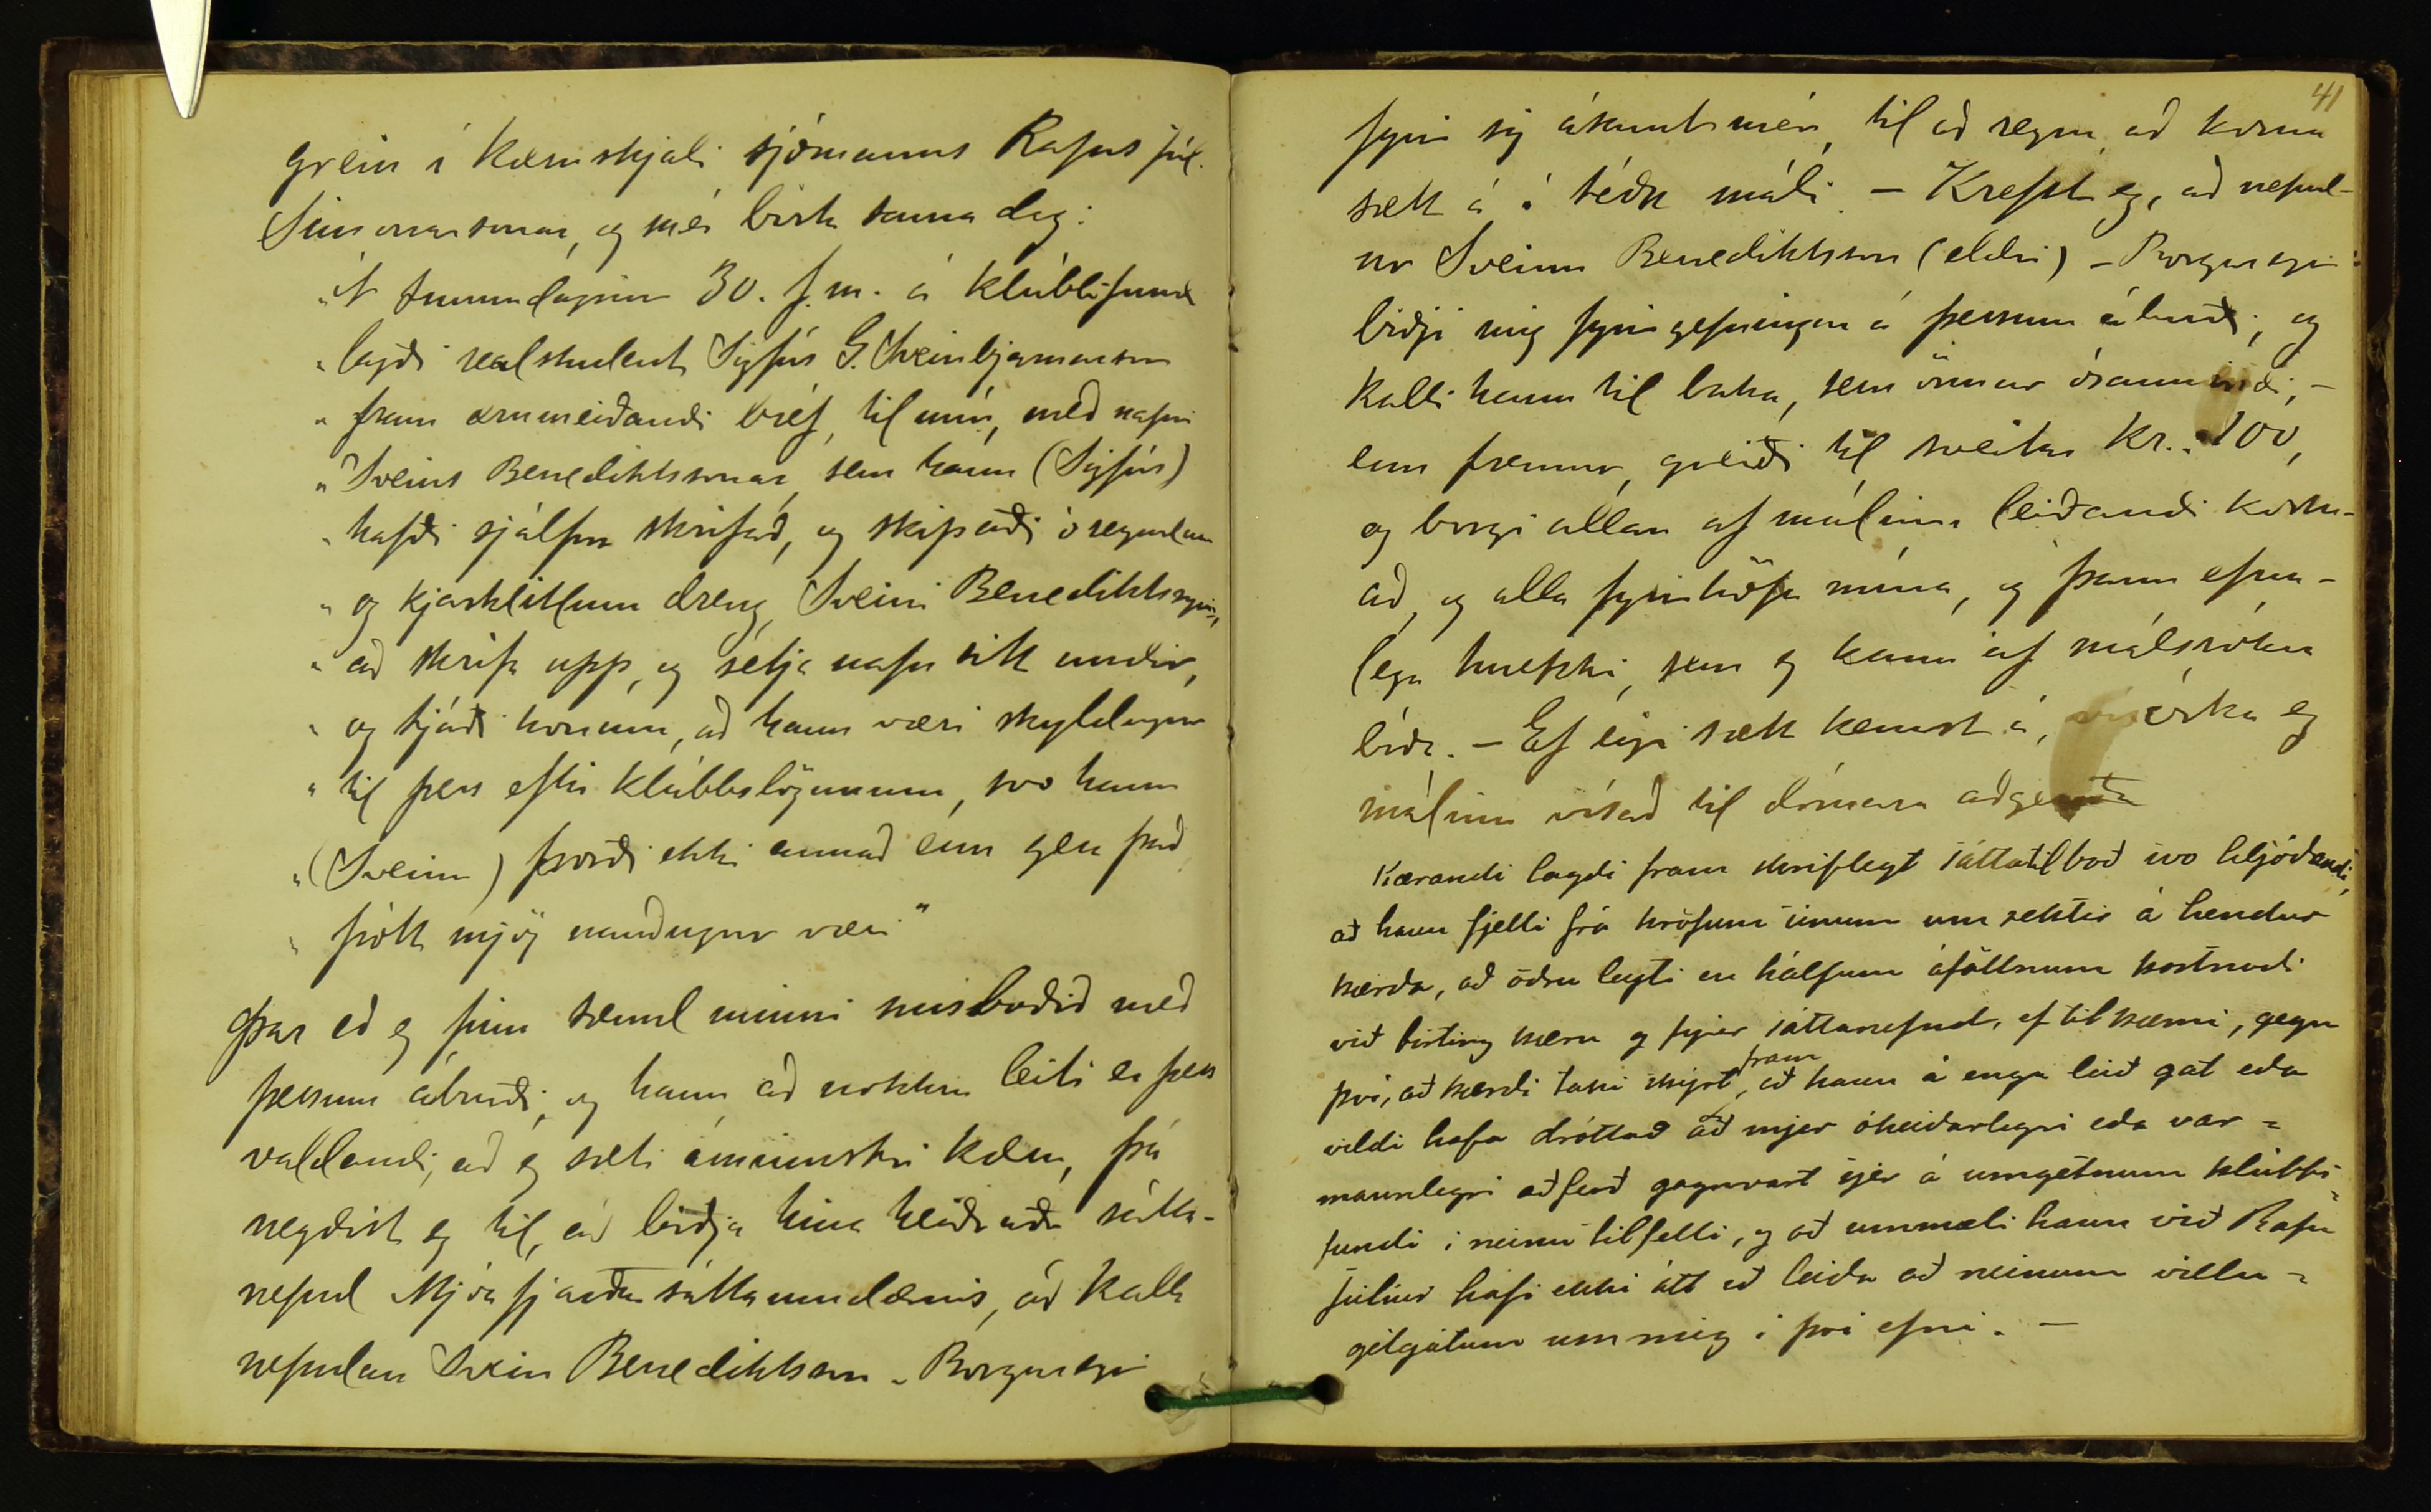 grein í kæruskjali sjómanns Rafns Júl.
Símonarsonar, og mér birta sama dag:
"Á sunnudaginn 30. f.m. á klúbbsfundi
" lagði realstudent Sigfús G. Sveinbjarnarson
" fram ærumeiðandi bréf, til mín, með nafni
" Sveins Benediktssonar, sem hann (Sigfús)
" hafði sjálfur skrifað, og skipaði óreyndum
" og kjarklitlum dreng, Sveini Benediktssyni,
" að skrifa upp, og setja nafn sitt undir,
" og tjáði honum, að hann væri skyldugur
" til þess eftir klúbbslögunum, svo hann
" (Sveinn) þorði ekki annað enn gera það
" þótt mjög nauðugur væri"
Þar eð eg finn sæmd minni misboðið með
þessum áburði, og hann að nokkru leiti er þess
valdandi, að eg sæti áminnstri kæru, þá
neyðist eg til, að biðja hina heiðruðu sátta-
nefnd Mjóafjarðar sáttaumdæmis, að kalla
nefndan Svein Benediktsson - Borgareyri
41
fyrir sig ásamt mér, til að reyna að koma
sætt á í téðu máli. - Krefst eg, að nefnd-
ur Sveinn Benediktsson (eldri) - Borgareyri
biðji mig fyrirgefningar á þessum áburði, og
kalli hann til baka, sem önnur ósannindi, -
enn fremur, greiði til sveitar kr. 100,
og borgi allan af málinu leiðandi kostn-
að, og alla fyrirhöfn mína, og þann efna-
lega hnekki, sem eg kann af málsókn
bíða. - Ef eigi sætt kemst á, óska eg
málinu vísað til dómara aðgerða
Kærandi lagði fram skriflegt sáttatilboð svo hljóðandi,
að hann fjelli frá kröfum sínum um sektir á hendur
kærða, að öðru leyti en hálfum áföllnum kostnaði
við birting kæru og fyrir sáttanefnd, ef til kæmi, gegn
því, að kærði taki skýrt fram, að hann á enga leið gat eða
vildi hafa dróttað að mjer óheiðarlegri eða var=
mannlegri aðferð gagnvart sjer á umgetnum klúbbs=
fundi í neinu tilfelli, og að ummæli hans við Rafn
Júlíus hafi ekki átt að leiða að neinum villu=
getgátum um mig í því efni. -